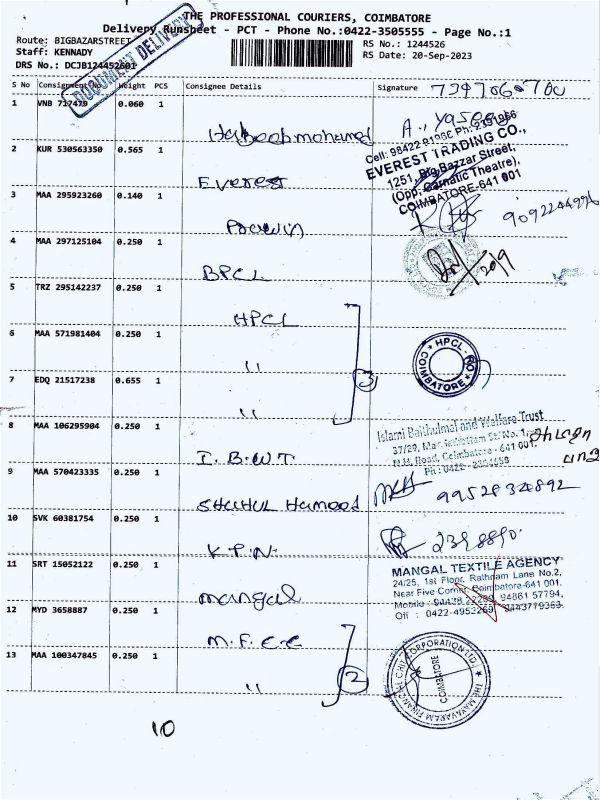 THE PROFESSIONAL COURIERS, COIMBATORE
Delivery Runsheet - PCT - Phone No.:0422-3505555 - Page No.:1
Route: BIGBAZARSTREET
Staff: KENNADY
DRS No.: DCJB124452601
RS No.: 1244526
RS Date: 20-Sep-2023
DOCUMENT DELIVERY
S No Consignment No Weight PCS Consignee Details Signature
1 VNB 717479 0.060 1
Habeebmohamed
2 KUR 530563350 0.565 1
Everest
Cell: 98422
EVEREST TRADING CO.,
1251, Big Bazzar Street,
(Opp. Carnatic Theatre),
COIMBATORE-641 001
3 MAA 295923260 0.140 1
4 MAA 297125104 0.250 1
BPCL
5 TRZ 295142237 0.250 1
HPCL
6 MAA 571981404 0.250 1
"
HPCL
COIMBATORE
3
7 EDQ 21517238 0.655 1
"
8 MAA 106295904 0.250 1
I.B.W.T
Islami Baithulmal and Welfare Trust
N.H. Road, Coimbatore - 641 001.
9 MAA 570423335 0.250 1
SHAHUL Hameed
9952834892
10 SVK 60381754 0.250 1
K.P.N.
11 SRT 15052122 0.250 1
mangal
MANGAL TEXTILE AGENCY
24/25, 1st Floor, Rathnam Lane No.2,
Near Five Corner, Coimbatore-641 001.
94881 57794,
Off : 0422-4952269 9443779363.
12 MYD 3658887 0.250 1
M.F.C.C
13 MAA 100347845 0.250 1
"
2
THE MAYAVARAM FINANCIAL CHIT CORPORATION LTD.
COIMBATORE
10